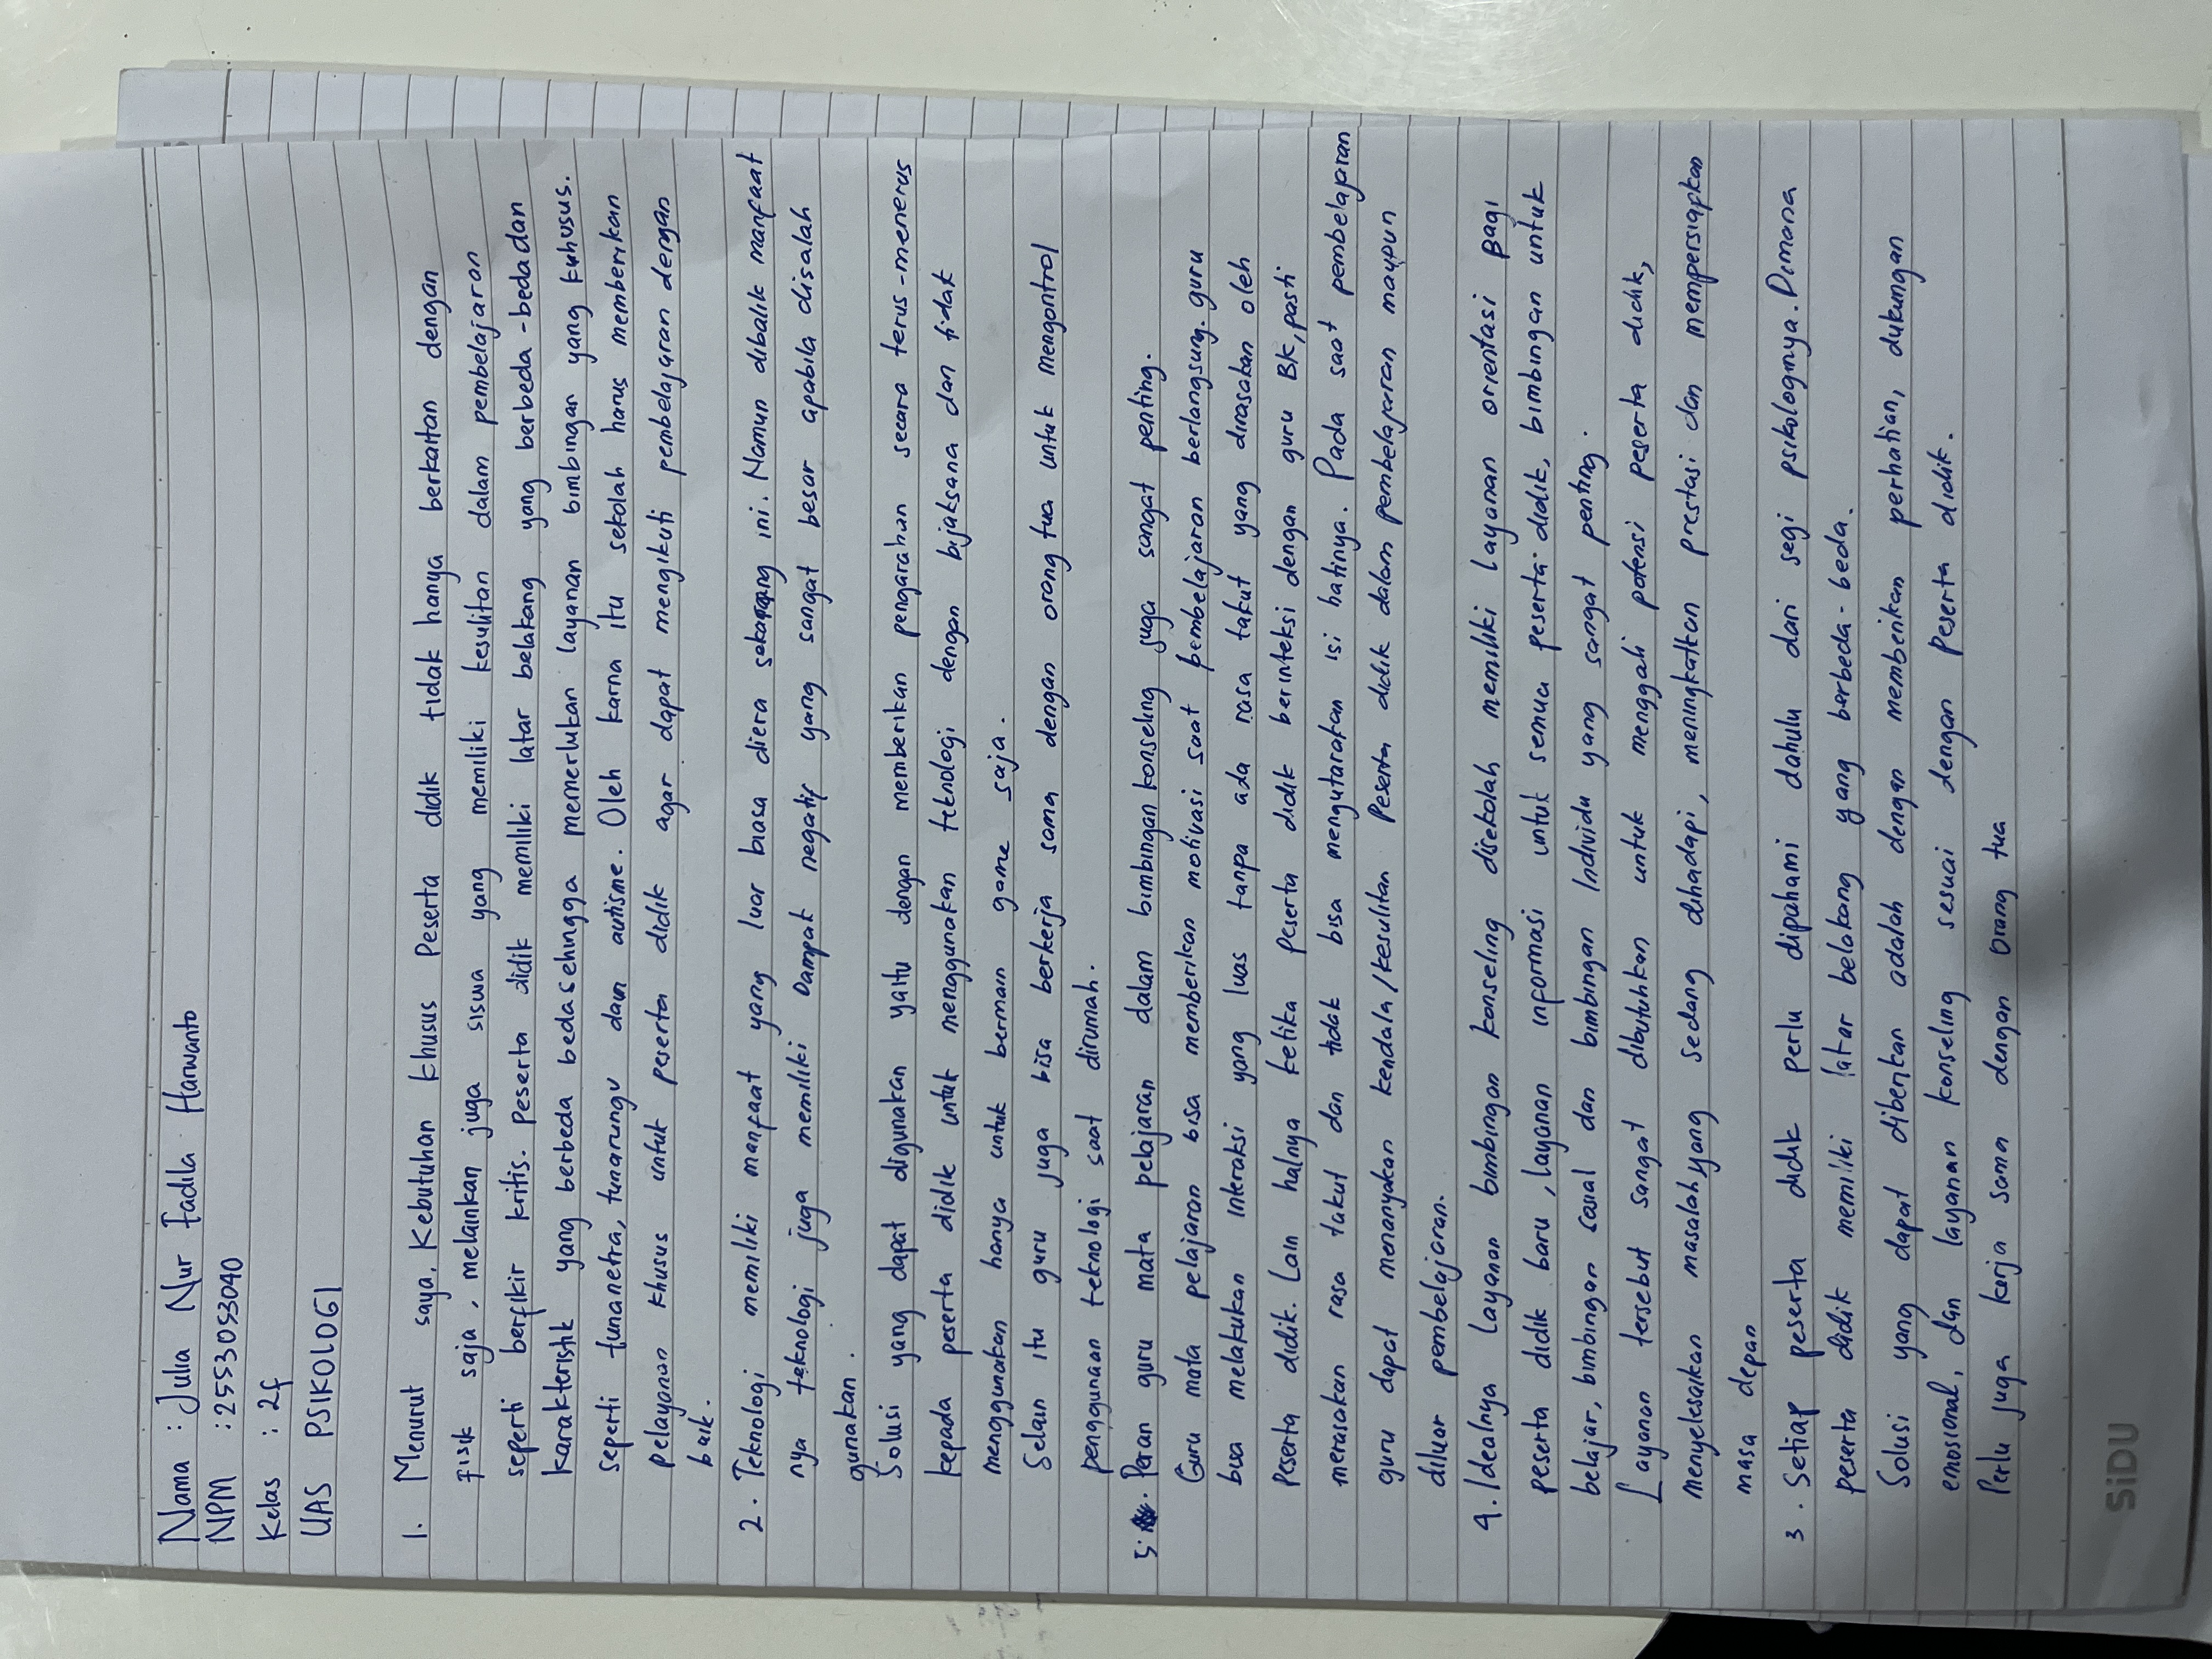 Nama : Julia Nur Fadila Harwanto
NPM : 2553053040
Kelas : 2f
UAS PSIKOLOGI
1. Menurut saya, Kebutuhan khusus Peserta didik tidak hanya berkaitan dengan
Fisik saja, melainkan juga siswa yang memiliki kesulitan dalam pembelajaran
seperti berfikir kritis. Peserta didik memiliki latar belakang yang berbeda-beda dan
karakteristik yang berbeda beda sehingga memerlukan layanan bimbingan yang kuhusus.
seperti tunanetra, tunarungu dan autisme. Oleh karna itu sekolah harus memberikan
pelayanan khusus untuk peserta didik agar dapat mengikuti pembelajaran dengan
baik.
2. Teknologi memiliki manfaat yang luar biasa diera sekarang ini. Namun dibalik manfaat
nya teknologi juga memiliki Dampak negatif yang sangat besar apabila disalah
gunakan.
Solusi yang dapat digunakan yaitu dengan memberikan pengarahan secara terus-menerus
kepada peserta didik untuk menggunakan teknologi dengan bijaksana dan tidak
menggunakan hanya untuk bermain game saja.
Selain itu guru juga bisa berkerja sama dengan orang tua untuk mengontrol
penggunaan teknologi saat dirumah.
5. Peran guru mata pelajaran dalam bimbingan konseling juga sangat penting.
Guru mata pelajaran bisa memberikan motivasi saat pembelajaran berlangsung. guru
bisa melakukan interaksi yang luas tanpa ada rasa takut yang dirasakan oleh
Peserta didik. Lain halnya ketika Peserta didik berinteksi dengan guru BK, pasti
merasakan rasa takut dan tidak bisa mengutarakan isi hatinya. Pada saat pembelajaran
guru dapat menanyakan kendala/kesulitan Peserta didik dalam pembelajaran maupun
diluar pembelajaran.
4. Idealnya Layanan bimbingan konseling disekolah memiliki Layanan orientasi bagi
peserta didik baru, layanan informasi untuk semua peserta didik, bimbingan untuk
belajar, bimbingan sosial dan bimbingan Individu yang sangat penting.
Layanan tersebut sangat dibutuhkan untuk menggali potensi peserta didik,
menyelesaikan masalah yang sedang dihadapi, meningkatkan prestasi dan mempersiapkan
masa depan
3. Setiap peserta didik perlu dipahami dahulu dari segi psikologinya. Dimana
peserta didik memiliki latar belakang yang berbeda-beda.
Solusi yang dapat diberikan adalah dengan memberikan perhatian, dukungan
emosional, dan layanan konseling sesuai dengan Peserta didik.
Perlu juga kerja sama dengan Orang tua
SiDU